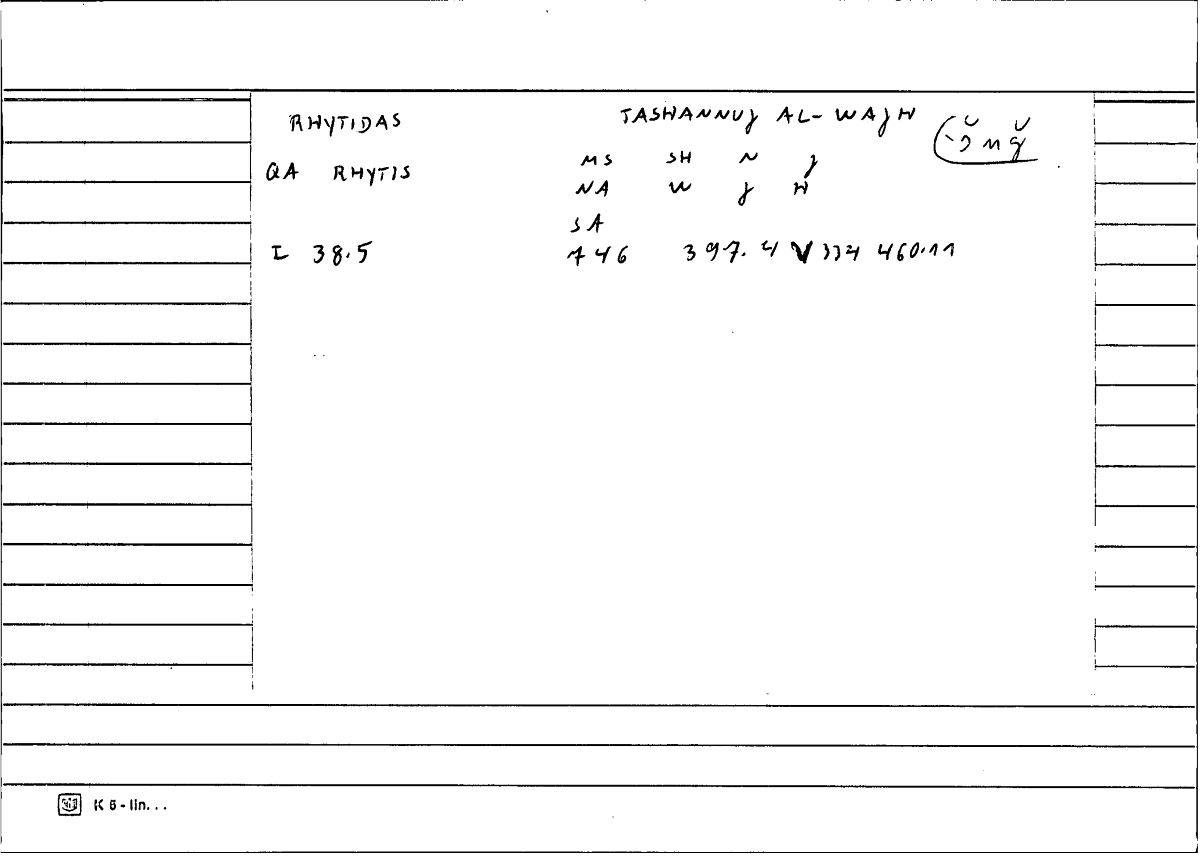 RHYTIDAS TASHANNUJ AL-WAJH šnǧ
QA RHYTIS MS SH N J
NA W J H
SA
I 38.5 746 397.4 V 334 460.11
K 6 - lin...